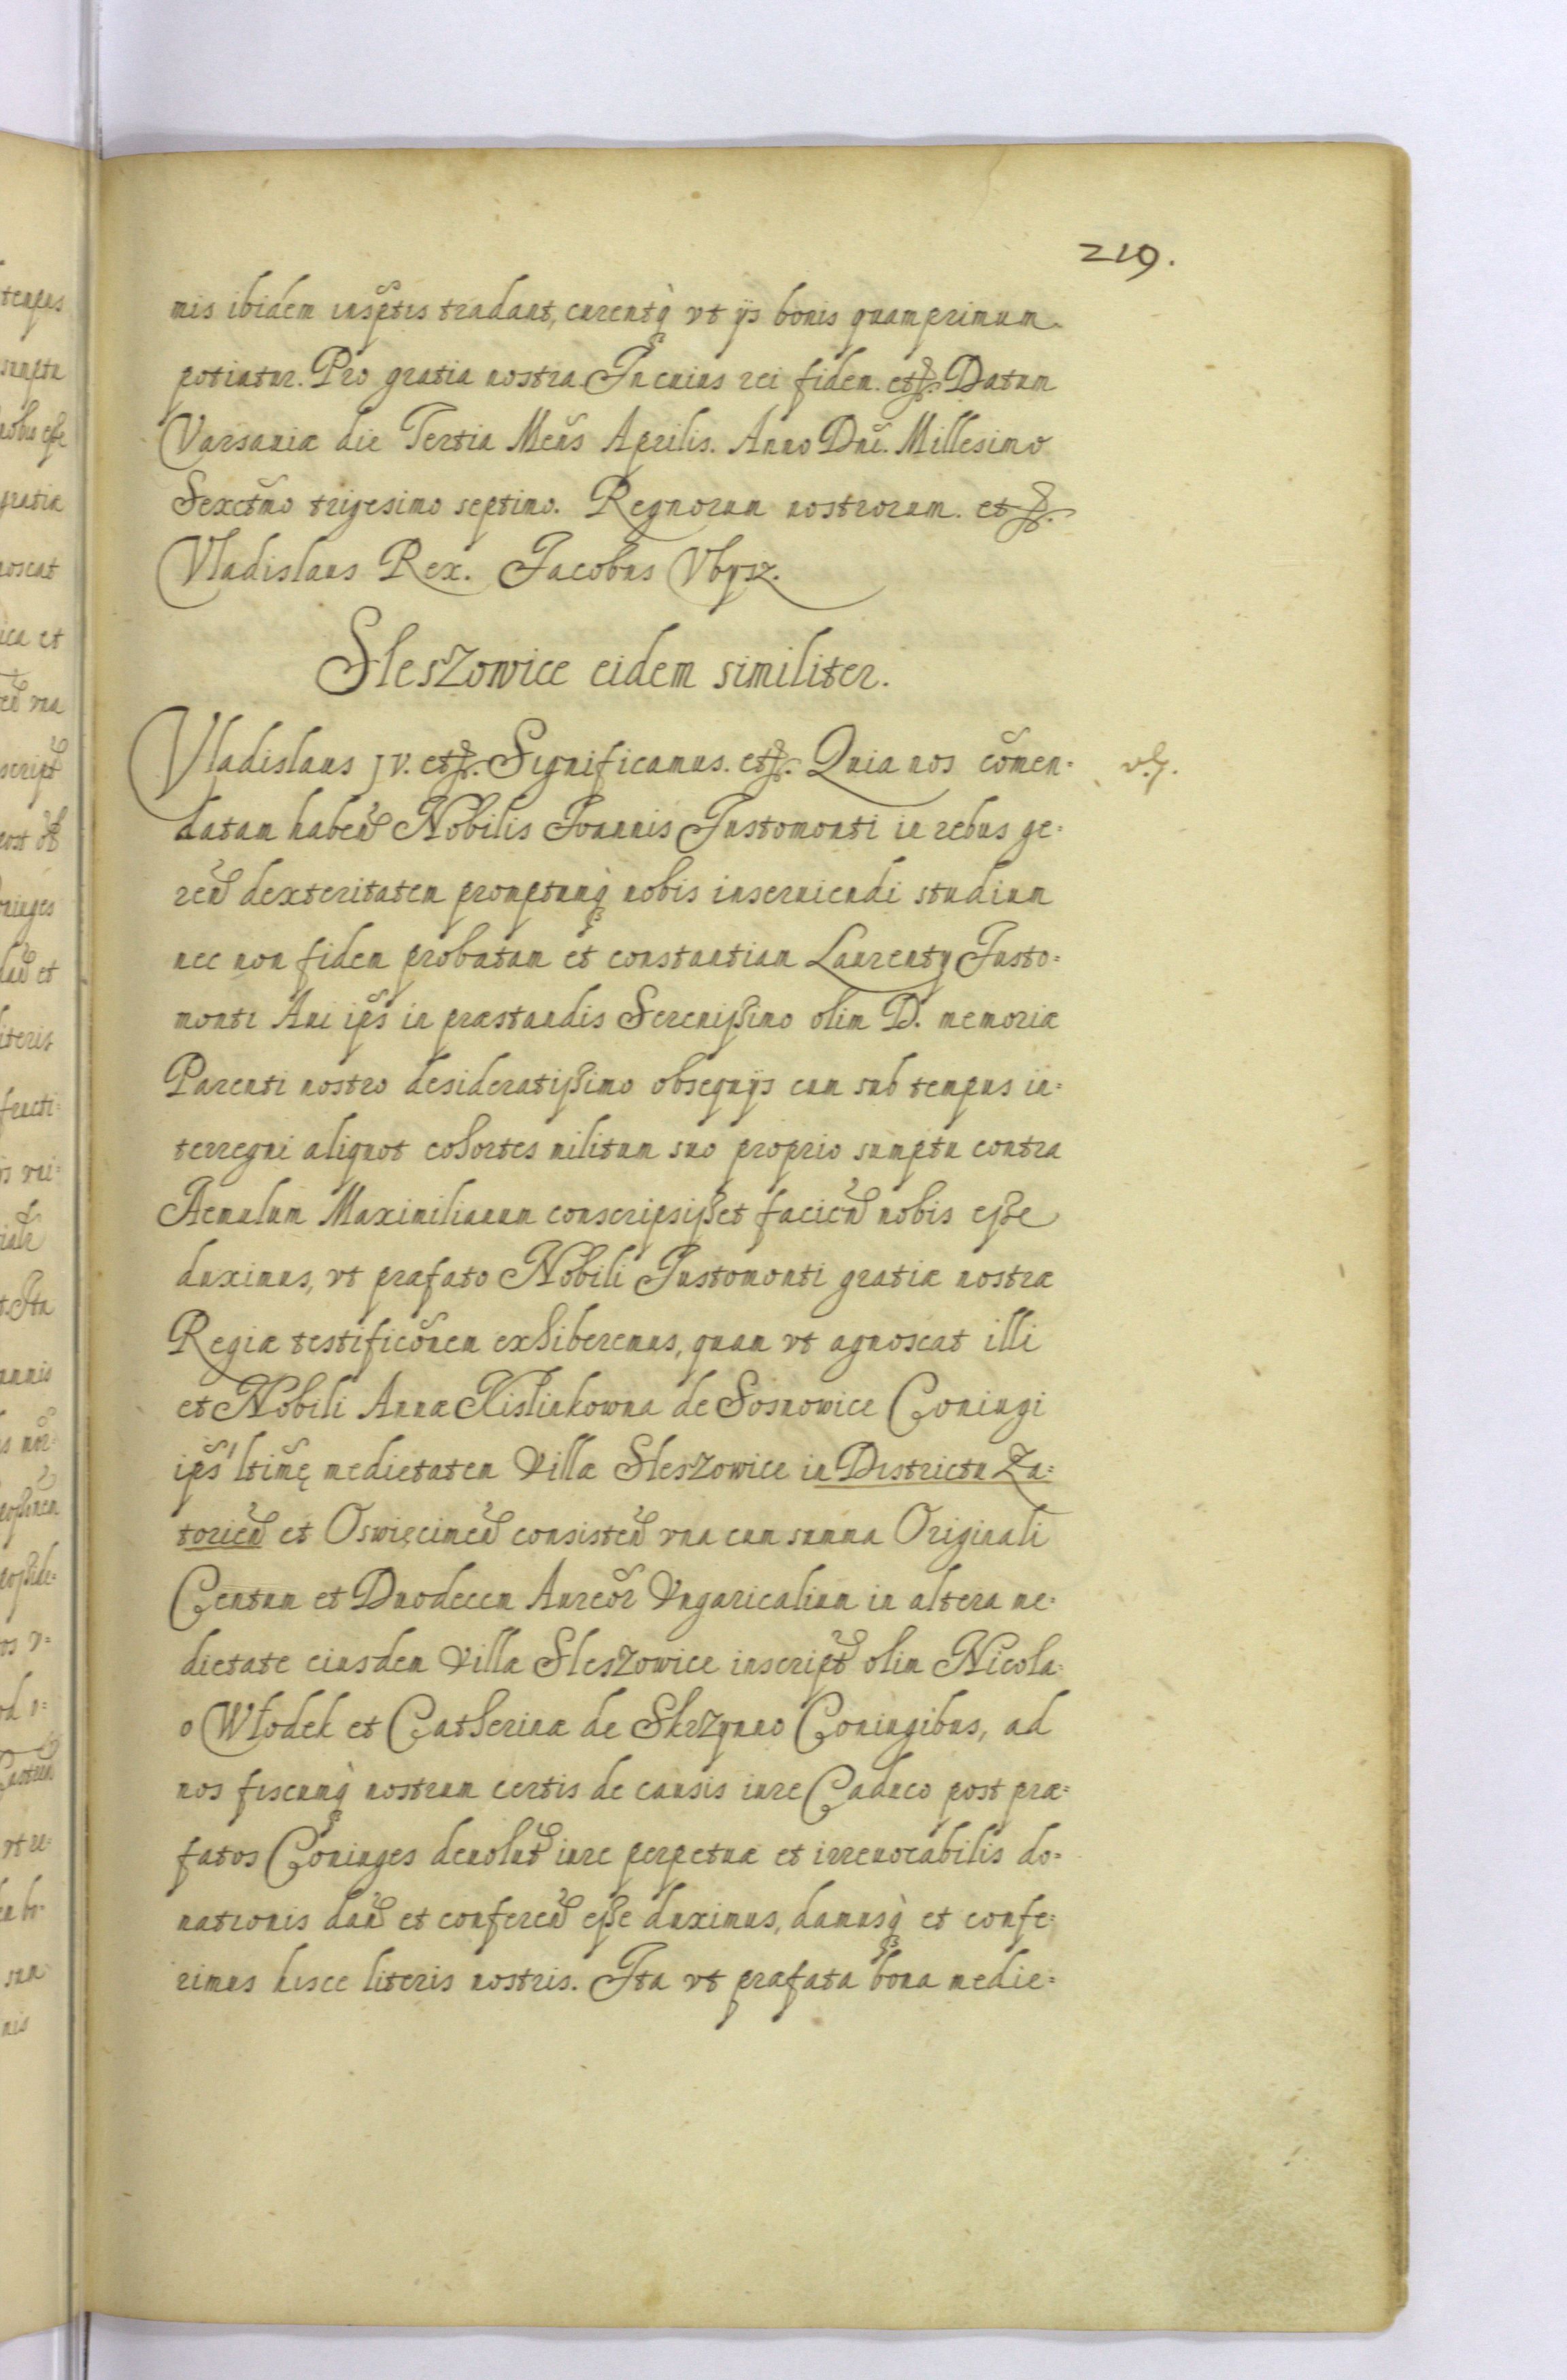 219.
mis ibidem insp̃tis tradant, curentq̀ vt ijs bonis quamprimum
potiatur. Pro gratia nostra. In cuius rei fidem. etc. Datum
Varsauiæ die Tertia Meñs Aprilis. Anno Dñi. Millesimo
Sexctm̃o trigesimo septimo. Regnorum nostrorum. etc.
Vladislaus Rex. Jacobus Vbysz.
Sleszowice eidem similiter.
Vladislaus jv. etc. Significamus. etc. Quia nos com̃en=
datam habeñ Nobilis Joannis Justomonti in rebus ge=
reñ dexteritatem promptumq̀ nobis inseruiendi studium
nec non fidem probatam et constantiam Laurentÿ Justo=
monti Aui ip̃s in præstandis Serenißimo olim D. memoriæ
Parenti nostro desideratißimo obsequijs cum sub tempus in=
terregni aliquot cohortes militum suo proprio sumptu contra
Aemulum Maximilianum conscripsißet facieñ nobis eße
duximus, vt præfato Nobili Justomonti gratiæ nostræ
Regiæ testificõnem exhiberemus, quam vt agnoscat illi
et Nobili Annæ Kislinkowna de Sosnowice Coniugi
ip̃s ltim̃ę medietatem Villæ Sleszowice in Districtu Za=
torieñ et Oswięcimeñ consisteñ vna cum summa Originali
Centum et Duodecem Aureor̃ Vngaricalium in altera me=
dietate eiusdem Villæ Sleszowice inscript̃ olim Nicola=
o Włodek et Catherinæ de Skrzynno Coniugibus, ad
nos fiscumq̀ nostrum certis de causis iure Caduco post præ=
fatos Coniuges deuolut̃ iure perpetuæ et irreuocabilis do=
nationis dañ et confereñ eße duximus, damusq̀ et confe=
rimus hisce literis nostris. Ita vt præfata bona medie=